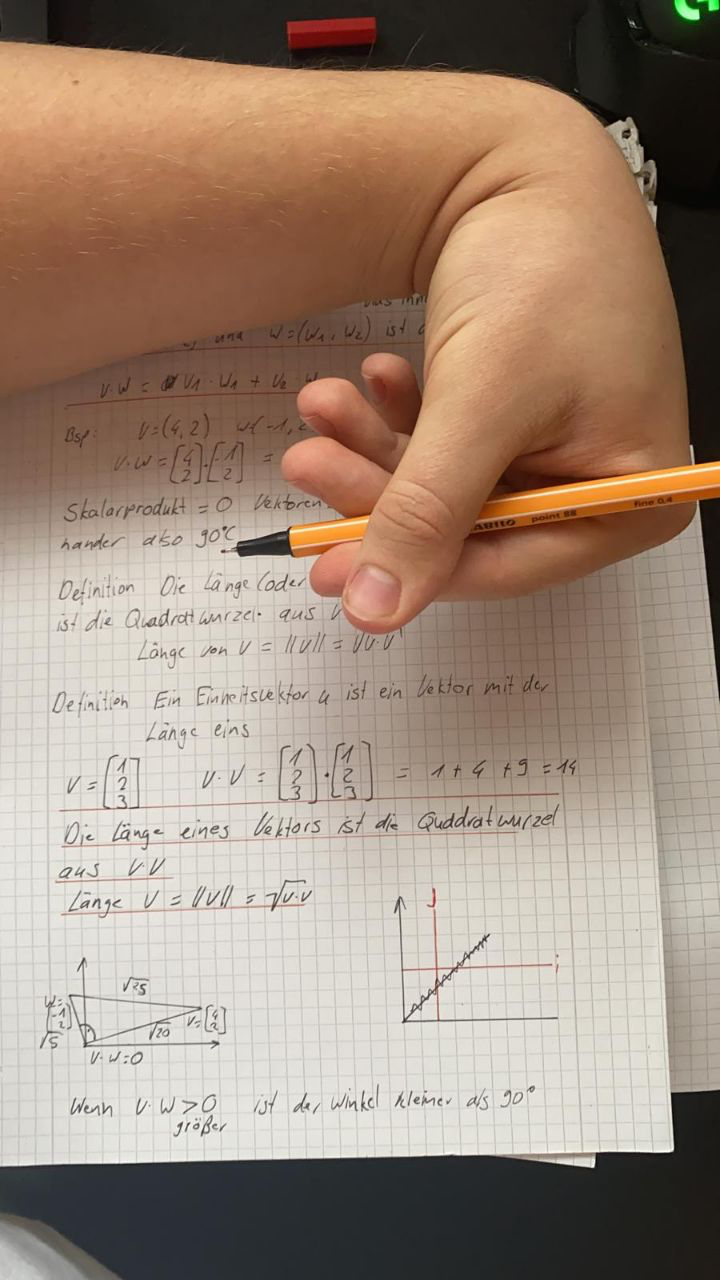 und W=(W₁, W₂) ist
V·W = V₁·W₁ + V₂·W
Bsp: V=(4,2) W(-1,2
V·W = [4 2]·[-1 2] =
Skalarprodukt = 0 Vektoren
nander also 90°C
STABILO point 88 fine 0,4
Definition Die Länge (oder
ist die Quadratwurzel aus V
Länge von V = ||V|| = √V·V
Definition Ein Einheitsvektor u ist ein Vektor mit der
Länge eins
V = [1 2 3] V·V = [1 2 3]·[1 2 3] = 1+4+9=14
Die Länge eines Vektors ist die Quddratwurzel
aus V·V
Länge V = ||V|| = √V·V
J
i
√25
W= [-1 2]
√5
√20
V=[4 2]
V·W=0
Wenn V·W>0 ist der Winkel kleiner als 90°
größer